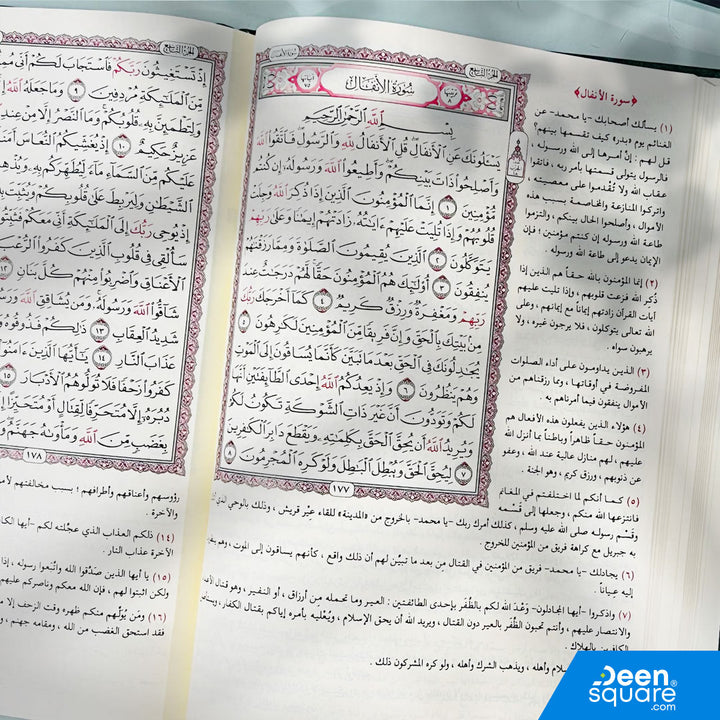 الجزء التاسع
سورة الأنفال
سُورَةُ الأَنفَالِ
بِسْمِ اللَّهِ الرَّحْمَٰنِ الرَّحِيمِ
يَسْـَٔلُونَكَ عَنِ ٱلْأَنفَالِ قُلِ ٱلْأَنفَالُ لِلَّهِ وَٱلرَّسُولِ فَٱتَّقُوا۟ ٱللَّهَ
وَأَصْلِحُوا۟ ذَاتَ بَيْنِكُمْ وَأَطِيعُوا۟ ٱللَّهَ وَرَسُولَهُۥٓ إِن كُنتُم
مُّؤْمِنِينَ ١ إِنَّمَا ٱلْمُؤْمِنُونَ ٱلَّذِينَ إِذَا ذُكِرَ ٱللَّهُ وَجِلَتْ
قُلُوبُهُمْ وَإِذَا تُلِيَتْ عَلَيْهِمْ ءَايَٰتُهُۥ زَادَتْهُمْ إِيمَٰنًا وَعَلَىٰ رَبِّهِمْ
يَتَوَكَّلُونَ ٢ ٱلَّذِينَ يُقِيمُونَ ٱلصَّلَوٰةَ وَمِمَّا رَزَقْنَٰهُمْ
يُنفِقُونَ ٣ أُو۟لَٰٓئِكَ هُمُ ٱلْمُؤْمِنُونَ حَقًّا لَّهُمْ دَرَجَٰتٌ عِندَ
رَبِّهِمْ وَمَغْفِرَةٌ وَرِزْقٌ كَرِيمٌ ٤ كَمَآ أَخْرَجَكَ رَبُّكَ
مِنۢ بَيْتِكَ بِٱلْحَقِّ وَإِنَّ فَرِيقًا مِّنَ ٱلْمُؤْمِنِينَ لَكَٰرِهُونَ ٥
يُجَٰدِلُونَكَ فِى ٱلْحَقِّ بَعْدَ مَا تَبَيَّنَ كَأَنَّمَا يُسَاقُونَ إِلَى ٱلْمَوْتِ
وَهُمْ يَنظُرُونَ ٦ وَإِذْ يَعِدُكُمُ ٱللَّهُ إِحْدَى ٱلطَّآئِفَتَيْنِ أَنَّهَا
لَكُمْ وَتَوَدُّونَ أَنَّ غَيْرَ ذَاتِ ٱلشَّوْكَةِ تَكُونُ لَكُمْ
وَيُرِيدُ ٱللَّهُ أَن يُحِقَّ ٱلْحَقَّ بِكَلِمَٰتِهِۦ وَيَقْطَعَ دَابِرَ ٱلْكَٰفِرِينَ
٧ لِيُحِقَّ ٱلْحَقَّ وَيُبْطِلَ ٱلْبَٰطِلَ وَلَوْ كَرِهَ ٱلْمُجْرِمُونَ ٨
١٧٧
﴿سورة الأنفال﴾
(١) يسألك أصحابك -يا محمد- عن
الغنائم يوم «بدر» كيف تقسمها بينهم؟
قل لهم: إنَّ أمرها إلى الله ورسوله ،
فالرسول يتولى قسمتها بأمر ربه ، فاتقوا
عقاب الله ولا تُقدموا على معصيته ،
واتركوا المنازعة والمخاصمة بسبب هذه
الأموال ، وأصلحوا الحال بينكم ، والتزموا
طاعة الله ورسوله إن كنتم مؤمنين ؛ فإن
الإيمان يدعو إلى طاعة الله ورسوله .
(٢) إنَّما المؤمنون بالله حقاً هم الذين إذا
ذُكر الله فزعت قلوبهم ، وإذا تليت عليهم
آيات القرآن زادتهم إيماناً مع إيمانهم ، وعلى
الله تعالى يتوكلون ، فلا يرجون غيره ، ولا
يرهبون سواه .
(٣) الذين يداومون على أداء الصلوات
المفروضة في أوقاتها ، ومما رزقناهم من
الأموال ينفقون فيما أمرناهم به .
(٤) هؤلاء الذين يفعلون هذه الأفعال هم
المؤمنون حقاً ظاهراً وباطناً بما أنزل الله
عليهم ، لهم منازل عالية عند الله ، وعفو
عن ذنوبهم ، ورزق كريم ، وهو الجنة .
(٥) كما أنكم لما اختلفتم في المغانم
فانتزعها الله منكم ، وجعلها إلى قَسْمه
وقَسْم رسوله صلى الله عليه وسلم ، كذلك أمرك ربك -يا محمد- بالخروج من «المدينة» للقاء عِيْر قريش ، وذلك بالوحي الذي
به جبريل مع كراهة فريق من المؤمنين للخروج .
(٦) يجادلك -يا محمد- فريق من المؤمنين في القتال مِن بعد ما تبيَّن لهم أن ذلك واقع ، كأنهم يساقون إلى الموت ، وهم
إليه عِياناً .
(٧) واذكروا -أيها المجادلون- وَعْدَ الله لكم بالظَّفَر بإحدى الطائفتين : العير وما تحمله مِن أرزاق ، أو النفير ، وهو قتال
والانتصار عليهم ، وأنتم تحبون الظَّفَر بالعير دون القتال ، ويريد الله أن يحق الإسلام ، ويُعْليه بأمره إياكم بقتال الكفار ،
الكافرين بالهلاك .
وأهله ، ويذهب الشرك وأهله ، ولو كره المشركون ذلك .
الجزء التاسع
إِذْ تَسْتَغِيثُونَ رَبَّكُمْ فَٱسْتَجَابَ لَكُمْ أَنِّى
مِّنَ ٱلْمَلَٰٓئِكَةِ مُرْدِفِينَ ٩ وَمَا جَعَلَهُ ٱللَّهُ
وَلِتَطْمَئِنَّ بِهِۦ قُلُوبُكُمْ وَمَا ٱلنَّصْرُ إِلَّا مِنْ عِندِ
عَزِيزٌ حَكِيمٌ ١٠ إِذْ يُغَشِّيكُمُ ٱلنُّعَاسَ
عَلَيْكُم مِّنَ ٱلسَّمَآءِ مَآءً لِّيُطَهِّرَكُم بِهِۦ
ٱلشَّيْطَٰنِ وَلِيَرْبِطَ عَلَىٰ قُلُوبِكُمْ وَيُثَبِّتَ
إِذْ يُوحِى رَبُّكَ إِلَى ٱلْمَلَٰٓئِكَةِ أَنِّى مَعَكُمْ
سَأُلْقِى فِى قُلُوبِ ٱلَّذِينَ كَفَرُوا۟ ٱلرُّعْبَ
ٱلْأَعْنَاقِ وَٱضْرِبُوا۟ مِنْهُمْ كُلَّ بَنَانٍ ١٢
شَآقُّوا۟ ٱللَّهَ وَرَسُولَهُۥ وَمَن يُشَاقِقِ ٱللَّهَ
شَدِيدُ ٱلْعِقَابِ ١٣ ذَٰلِكُمْ فَذُوقُوهُ
عَذَابَ ٱلنَّارِ ١٤ يَٰٓأَيُّهَا ٱلَّذِينَ ءَامَنُوٓا۟
كَفَرُوا۟ زَحْفًا فَلَا تُوَلُّوهُمُ ٱلْأَدْبَارَ ١٥
دُبُرَهُۥٓ إِلَّا مُتَحَرِّفًا لِّقِتَالٍ أَوْ مُتَحَيِّزًا
بِغَضَبٍ مِّنَ ٱللَّهِ وَمَأْوَىٰهُ جَهَنَّمُ
١٧٨
رؤوسهم وأعناقهم وأطرافهم ؛ بسبب مخالفتهم
والآخرة .
(١٤) ذلكم العذاب الذي عجَّلته لكم -أيها
الآخرة عذاب النار .
(١٥) يا أيها الذين صدَّقوا الله واتَّبعوا رسوله ، إذا
ولكن اثبتوا لهم ، فإن الله معكم وناصركم عليهم
(١٦) ومَن يُوَلِّهم منكم ظهره وقت الزحف إلا
فقد استحق الغضب من الله ، ومقامه جهنم ،
Deen
square®
.com